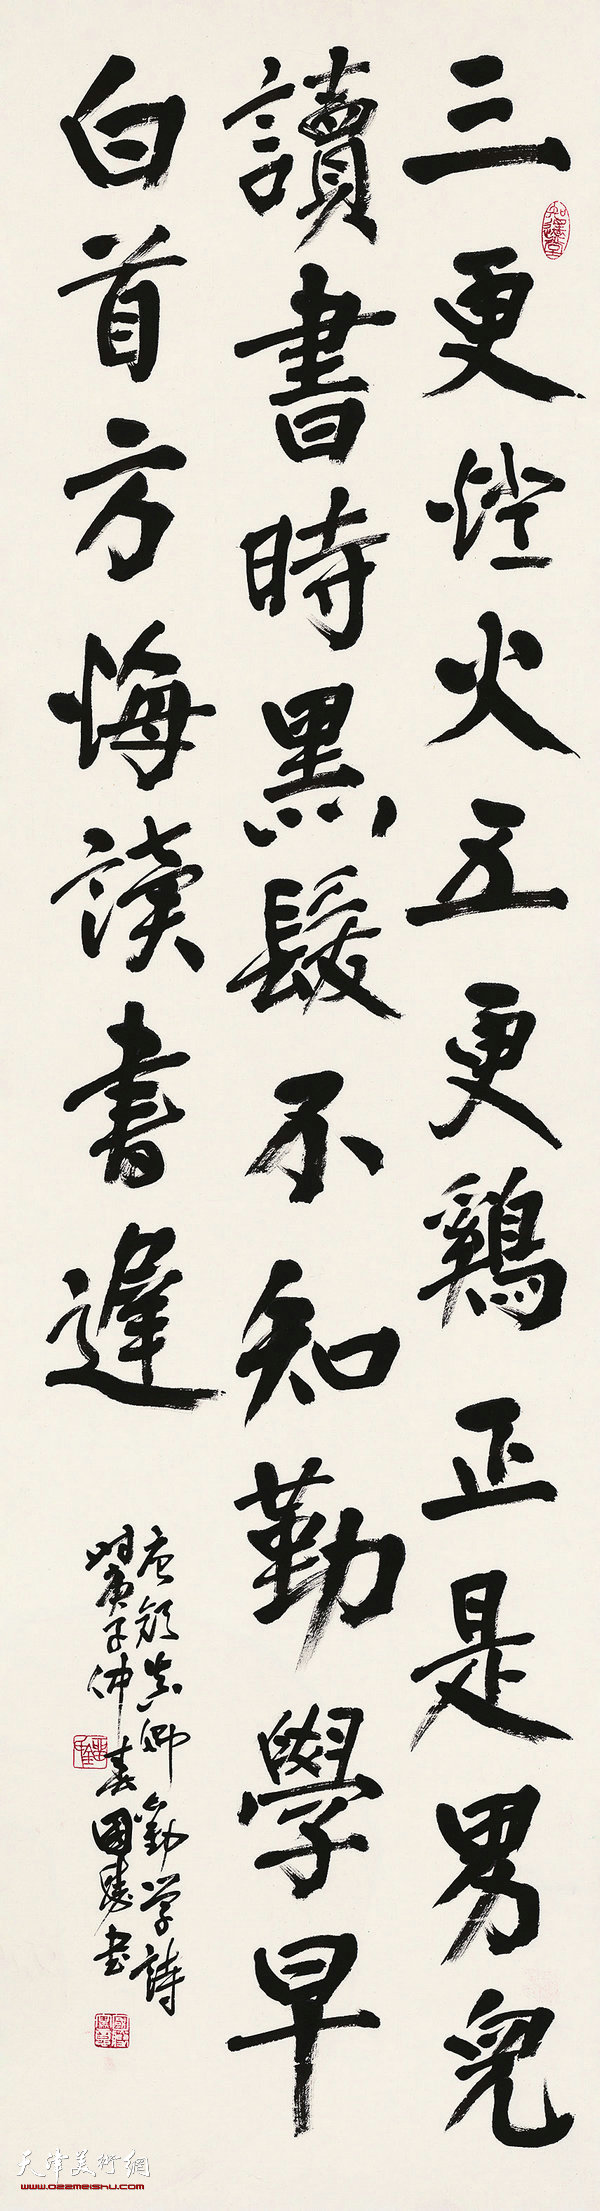 三更燈火五更鷄正是男兒
讀書時黑髮不知勤學早
白首方悔讀書遲
唐顔真卿勸学詩
时庚子仲春國勝书
天津美術網
www.022meishu.com